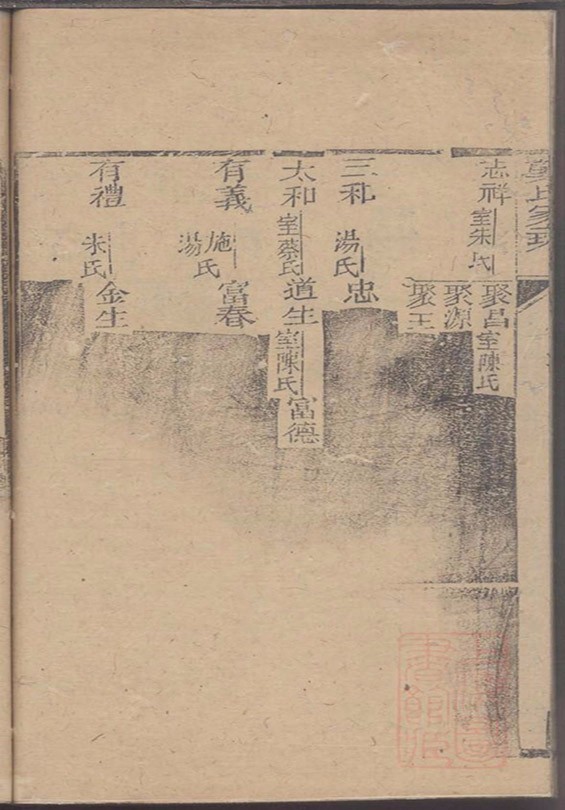 氏家
志祥 室朱氏 聚昌 室陳氏
聚源
聚王
三和 湯氏 忠
太和 室蔡氏 道生 室陳氏 富德
有義 施湯氏 富春
有禮 朱氏 金生